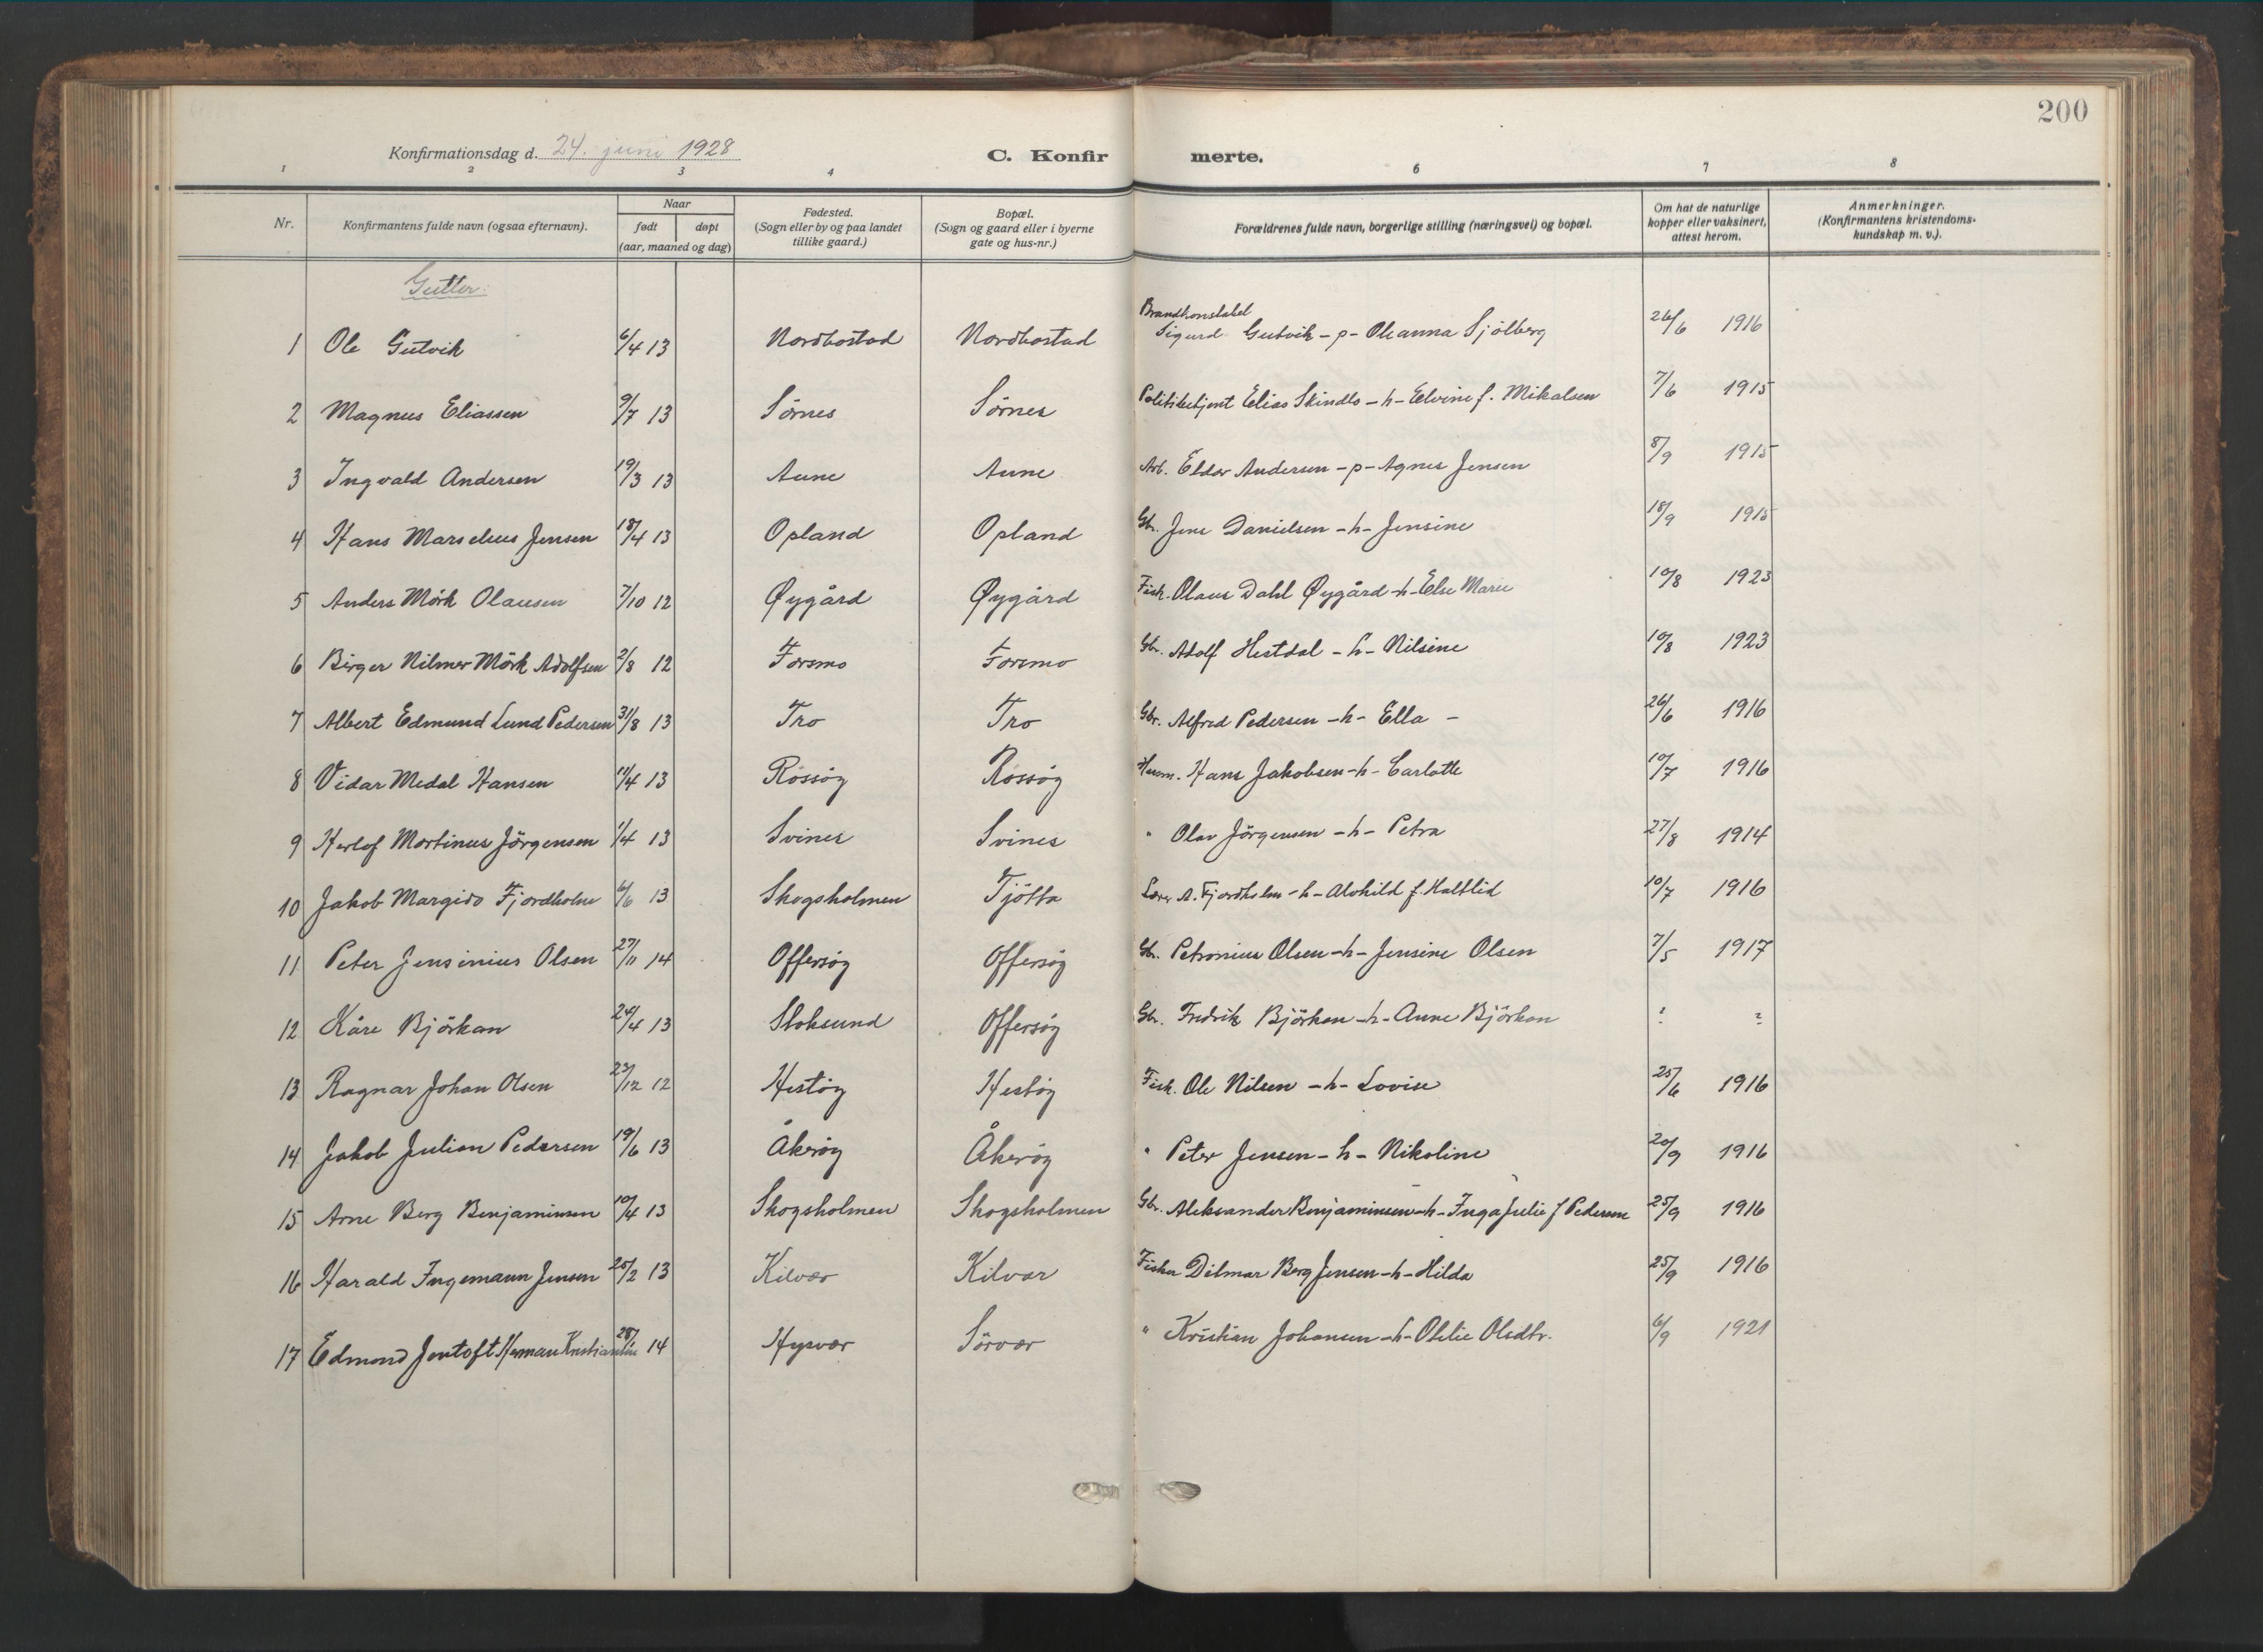 200
Konfirmationsdag d. 24. juni 1928
C. Konfirmerte.
1 2 3 4 6 7 8
Nr. Konfirmantens fulde navn (ogsaa efternavn). Naar født døpt (aar, maaned og dag) Fødested. (Sogn eller by og paa landet tillike gaard.) Bopæl. (Sogn og gaard eller i byerne gate og hus-nr.) Forældrenes fulde navn, borgerlige stilling (næringsvei) og bopæl. Om hat de naturlige kopper eller vaksinert, attest herom. Anmerkninger. (Konfirmantens kristendomskundskap m. v.).
Gutter:
1 Ole Gutvik 6/4 13 Nordbostad Nordbostad Brandkonstabel Sigurd Gutvik - p - Oleanna Sjölberg 26/6 1916
2 Magnus Eliassen 9/7 13 Sörnes Sörnes Politibetjent Elias Skindlo - h - Elvine f. Mikalsen 7/6 1915
3 Ingvald Andersen 19/3 13 Aune Aune Arb. Eldor Andersen - p - Agnes Jensen 8/9 1915
4 Hans Marselius Jensen 18/4 13 Opland Opland Gbr. Jens Danielsen - h - Jensine 18/9 1915
5 Anders Mörk Olausen 7/10 12 Øygård Øygård Fisk. Olaus Dahl Øygård - h - Else Marie 10/8 1923
6 Birger Hilmer Mörk Adolfsen 2/8 12 Forsmo Forsmo Gbr. Adolf Hestdal - h - Nilsine 10/8 1923
7 Albert Edmund Lund Pedersen 31/8 13 Tro Tro Gbr. Alfred Pedersen - h - Ella - 26/6 1916
8 Vidar Medal Hansen 11/4 13 Rössöy Rössöy Husm. Hans Jakobsen - h - Carlotte 10/7 1916
9 Herlof Martinus Jörgensen 1/4 13 Svines Svines " Olav Jörgensen - h - Petra 27/8 1914
10 Jakob Margido Fjordholm 6/6 13 Skogsholmen Tjötta Lærer A. Fjordholm - h - Alvhild f. Haltlid 10/7 1916
11 Peter Jensinius Olsen 27/11 14 Offersöy Offersöy Gbr. Petronius Olsen - h - Jensine Olsen 7/5 1917
12 Kåre Björkan 24/4 13 Stoksund Offersöy Gbr. Fredrik Björkan - h - Anne Björkan ? ?
13 Ragnar Johan Olsen 23/12 12 Hestöy Hestöy Fisk. Ole Nilsen - h - Lovise 25/6 1916
14 Jakob Julian Pedersen 19/6 13 Åkeröy Åkeröy " Peter Jensen - h - Nikoline 20/9 1916
15 Arne Berg Benjaminsen 10/4 13 Skogsholmen Skogsholmen Gbr. Aleksander Benjaminsen - h - Inga Julie f Pedersen 25/9 1916
16 Harald Ingemann Jensen 25/2 13 Kilvær Kilvær Fisker Dilmar Berg Jensen - h - Hilda 25/9 1916
17 Edmond Jentoft Herman Kristiansen 28/1 14 Hysvær Sörvær " Kristian Johansen - h - Otelie Olsdtr. 6/9 1921